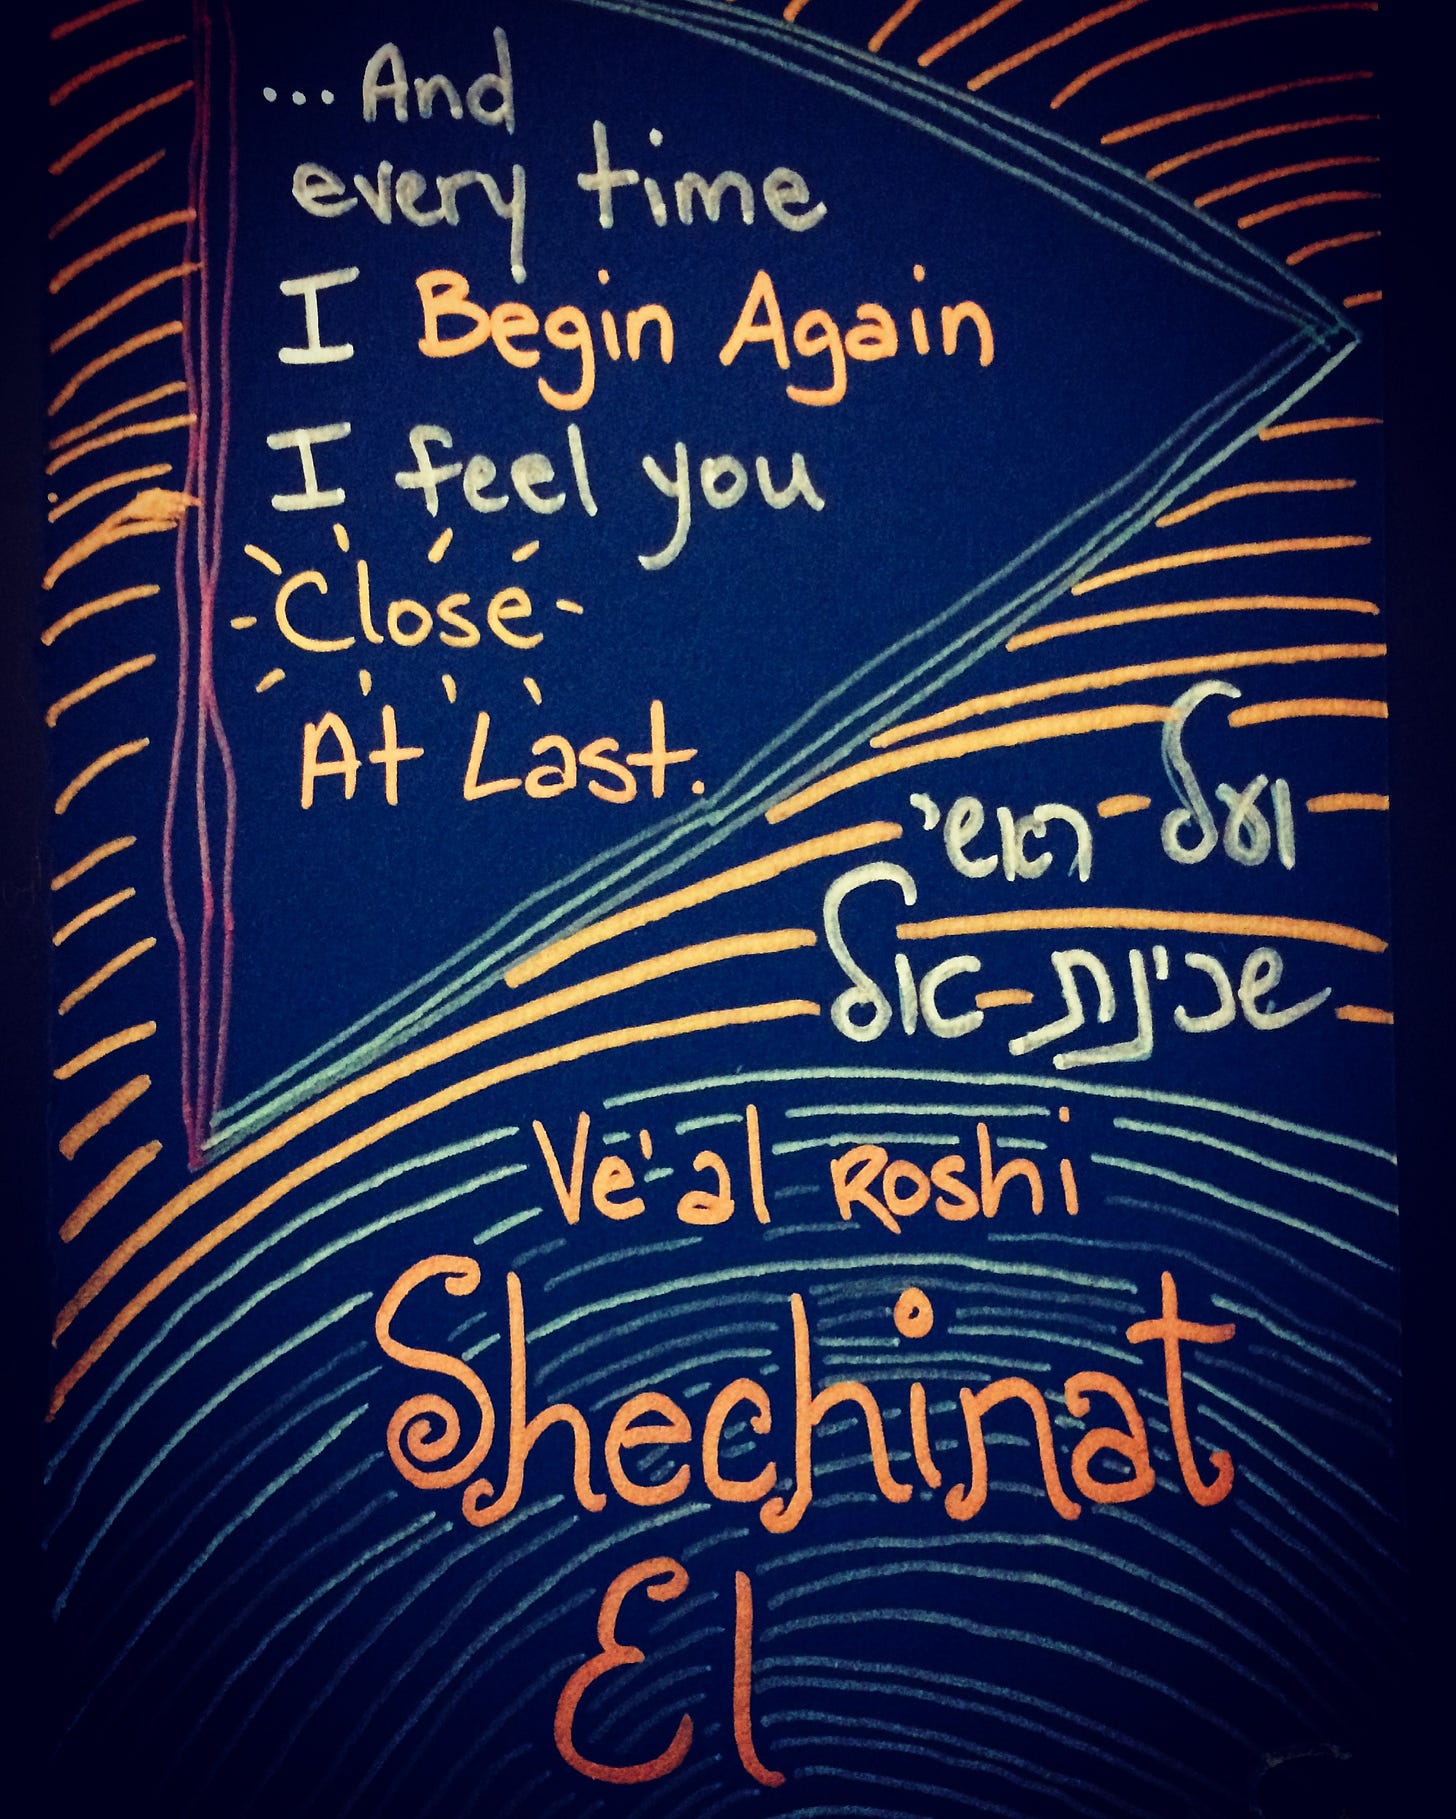 ...And
every time
I Begin Again
I feel you
Close
At Last.
ועל-ראשי
שכינת-אל
Ve'al Roshi
Shechinat
El